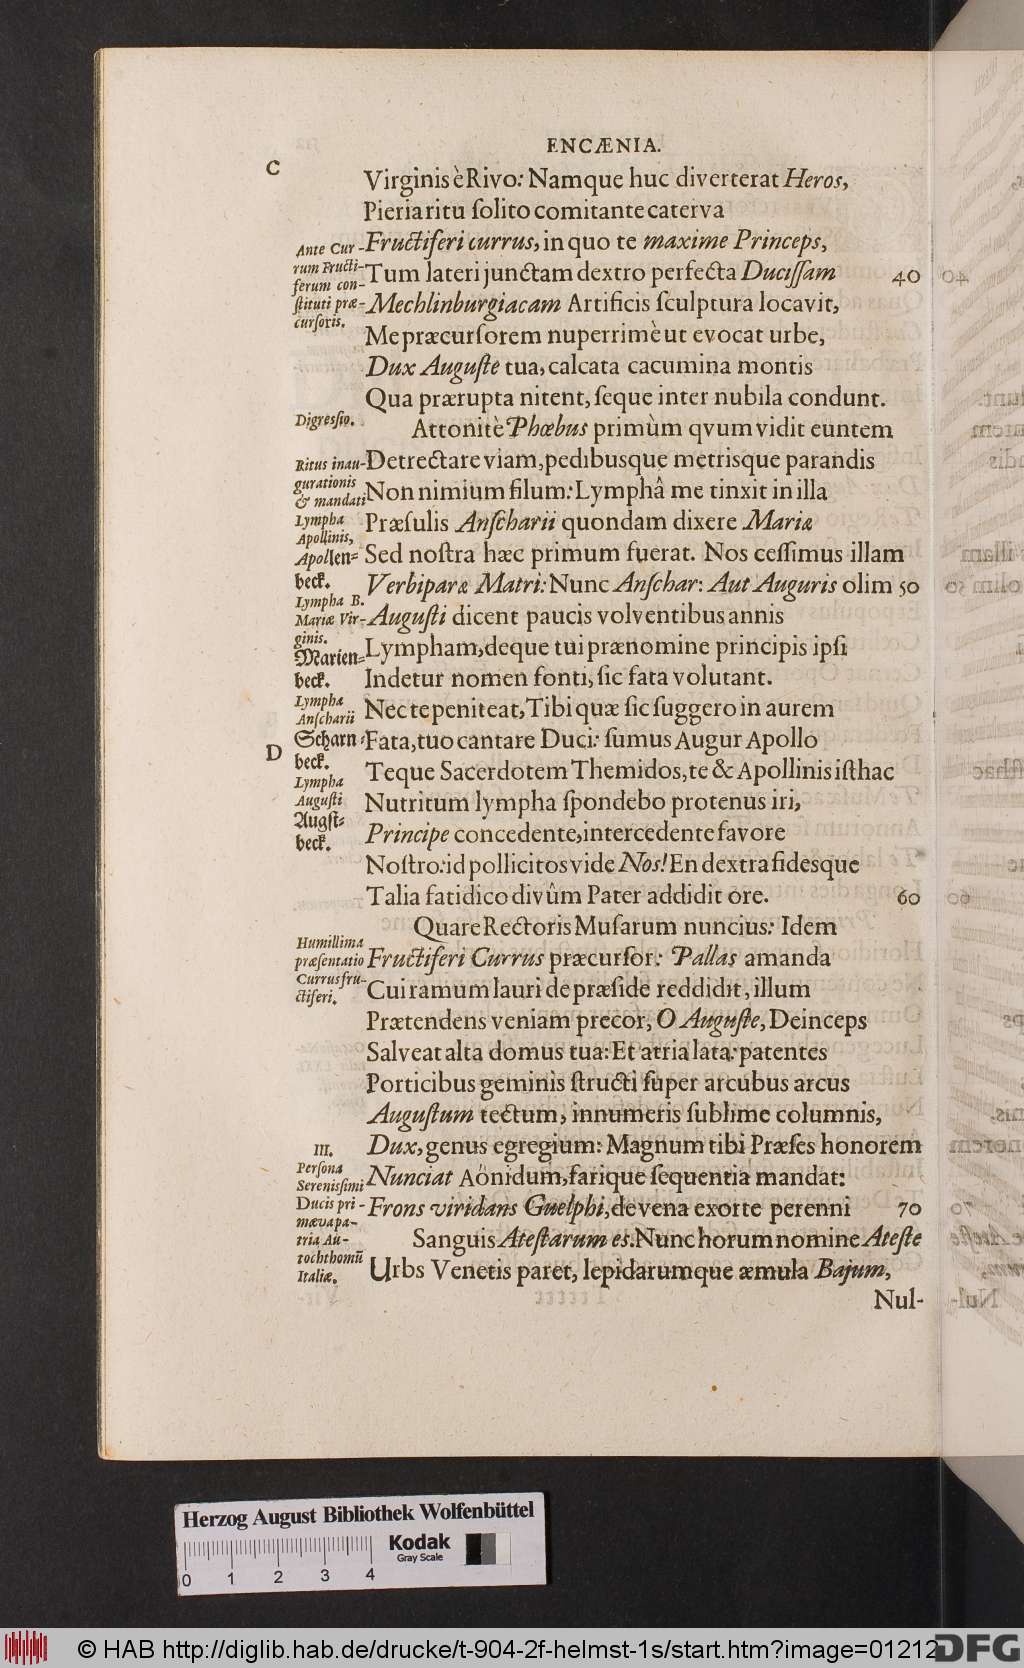 ENCÆNIA.
C
Virginis è Rivo: Namque huc diverterat Heros,
Pieria ritu ſolito comitante caterva
Fructiferi currus, in quo te maxime Princeps,
Tum lateri junctam dextro perfecta Duciſſam 40
Mechlinburgiacam Artificis ſculptura locavit,
Me præcurſorem nuperrimè ut evocat urbe,
Dux Auguſte tua, calcata cacumina montis
Qua prærupta nitent, ſeque inter nubila condunt.
Attonitè Phœbus primùm qvum vidit euntem
Detrectare viam, pedibusque metrisque parandis
Non nimium filum: Lymphâ me tinxit in illa
Præſulis Anſcharii quondam dixere Mariæ
Sed noſtra hæc primum fuerat. Nos ceſſimus illam
Verbiparæ Matri: Nunc Anſchar: Aut Auguris olim 50
Auguſti dicent paucis volventibus annis
Lympham, deque tui prænomine principis ipſi
Indetur nomen fonti, ſic fata volutant.
Nec te peniteat, Tibi quæ ſic ſuggero in aurem
Fata, tuo cantare Duci: ſumus Augur Apollo
Teque Sacerdotem Themidos, te & Apollinis iſthac
Nutritum lympha ſpondebo protenus iri,
Principe concedente, intercedente favore
Noſtro: id pollicitos vide Nos! En dextra fidesque
Talia fatidico divûm Pater addidit ore. 60
Quare Rectoris Muſarum nuncius: Idem
Fructiferi Currus præcurſor: Pallas amanda
Cui ramum lauri de præſide reddidit, illum
Prætendens veniam precor, O Auguſte, Deinceps
Salveat alta domus tua: Et atria lata: patentes
Porticibus geminis ſtructi ſuper arcubus arcus
Auguſtum tectum, innumeris ſublime columnis,
Dux, genus egregium: Magnum tibi Præſes honorem
Nunciat Aönidum, farique ſequentia mandat:
Frons viridans Guelphi, de vena exorte perenni 70
Sanguis Ateſtarum es. Nunc horum nomine Ateſte
Urbs Venetis paret, lepidarumque æmula Bajum,
Nul-
Ante Cur-
rum Fructi-
ferum con-
ſtituti præ-
curſoris.
Digreſſio.
Ritus inau-
gurationis
& mandati
Lympha
Apollinis,
Apollen=
beck.
Lympha B.
Mariæ Vir-
ginis.
Marien=
beck.
Lympha
Anſcharii
Scharn=
beck.
D
Lympha
Auguſti
Augſt=
beck.
Humillima
præſentatio
Currus fru-
ctiferi.
III.
Perſona
Sereniſſimi
Ducis pri-
mæva pa-
tria Au-
tochthomū
Italiæ.
Herzog August Bibliothek Wolfenbüttel
Kodak
Gray Scale
0 1 2 3 4
© HAB http://diglib.hab.de/drucke/t-904-2f-helmst-1s/start.htm?image=01212
DFG